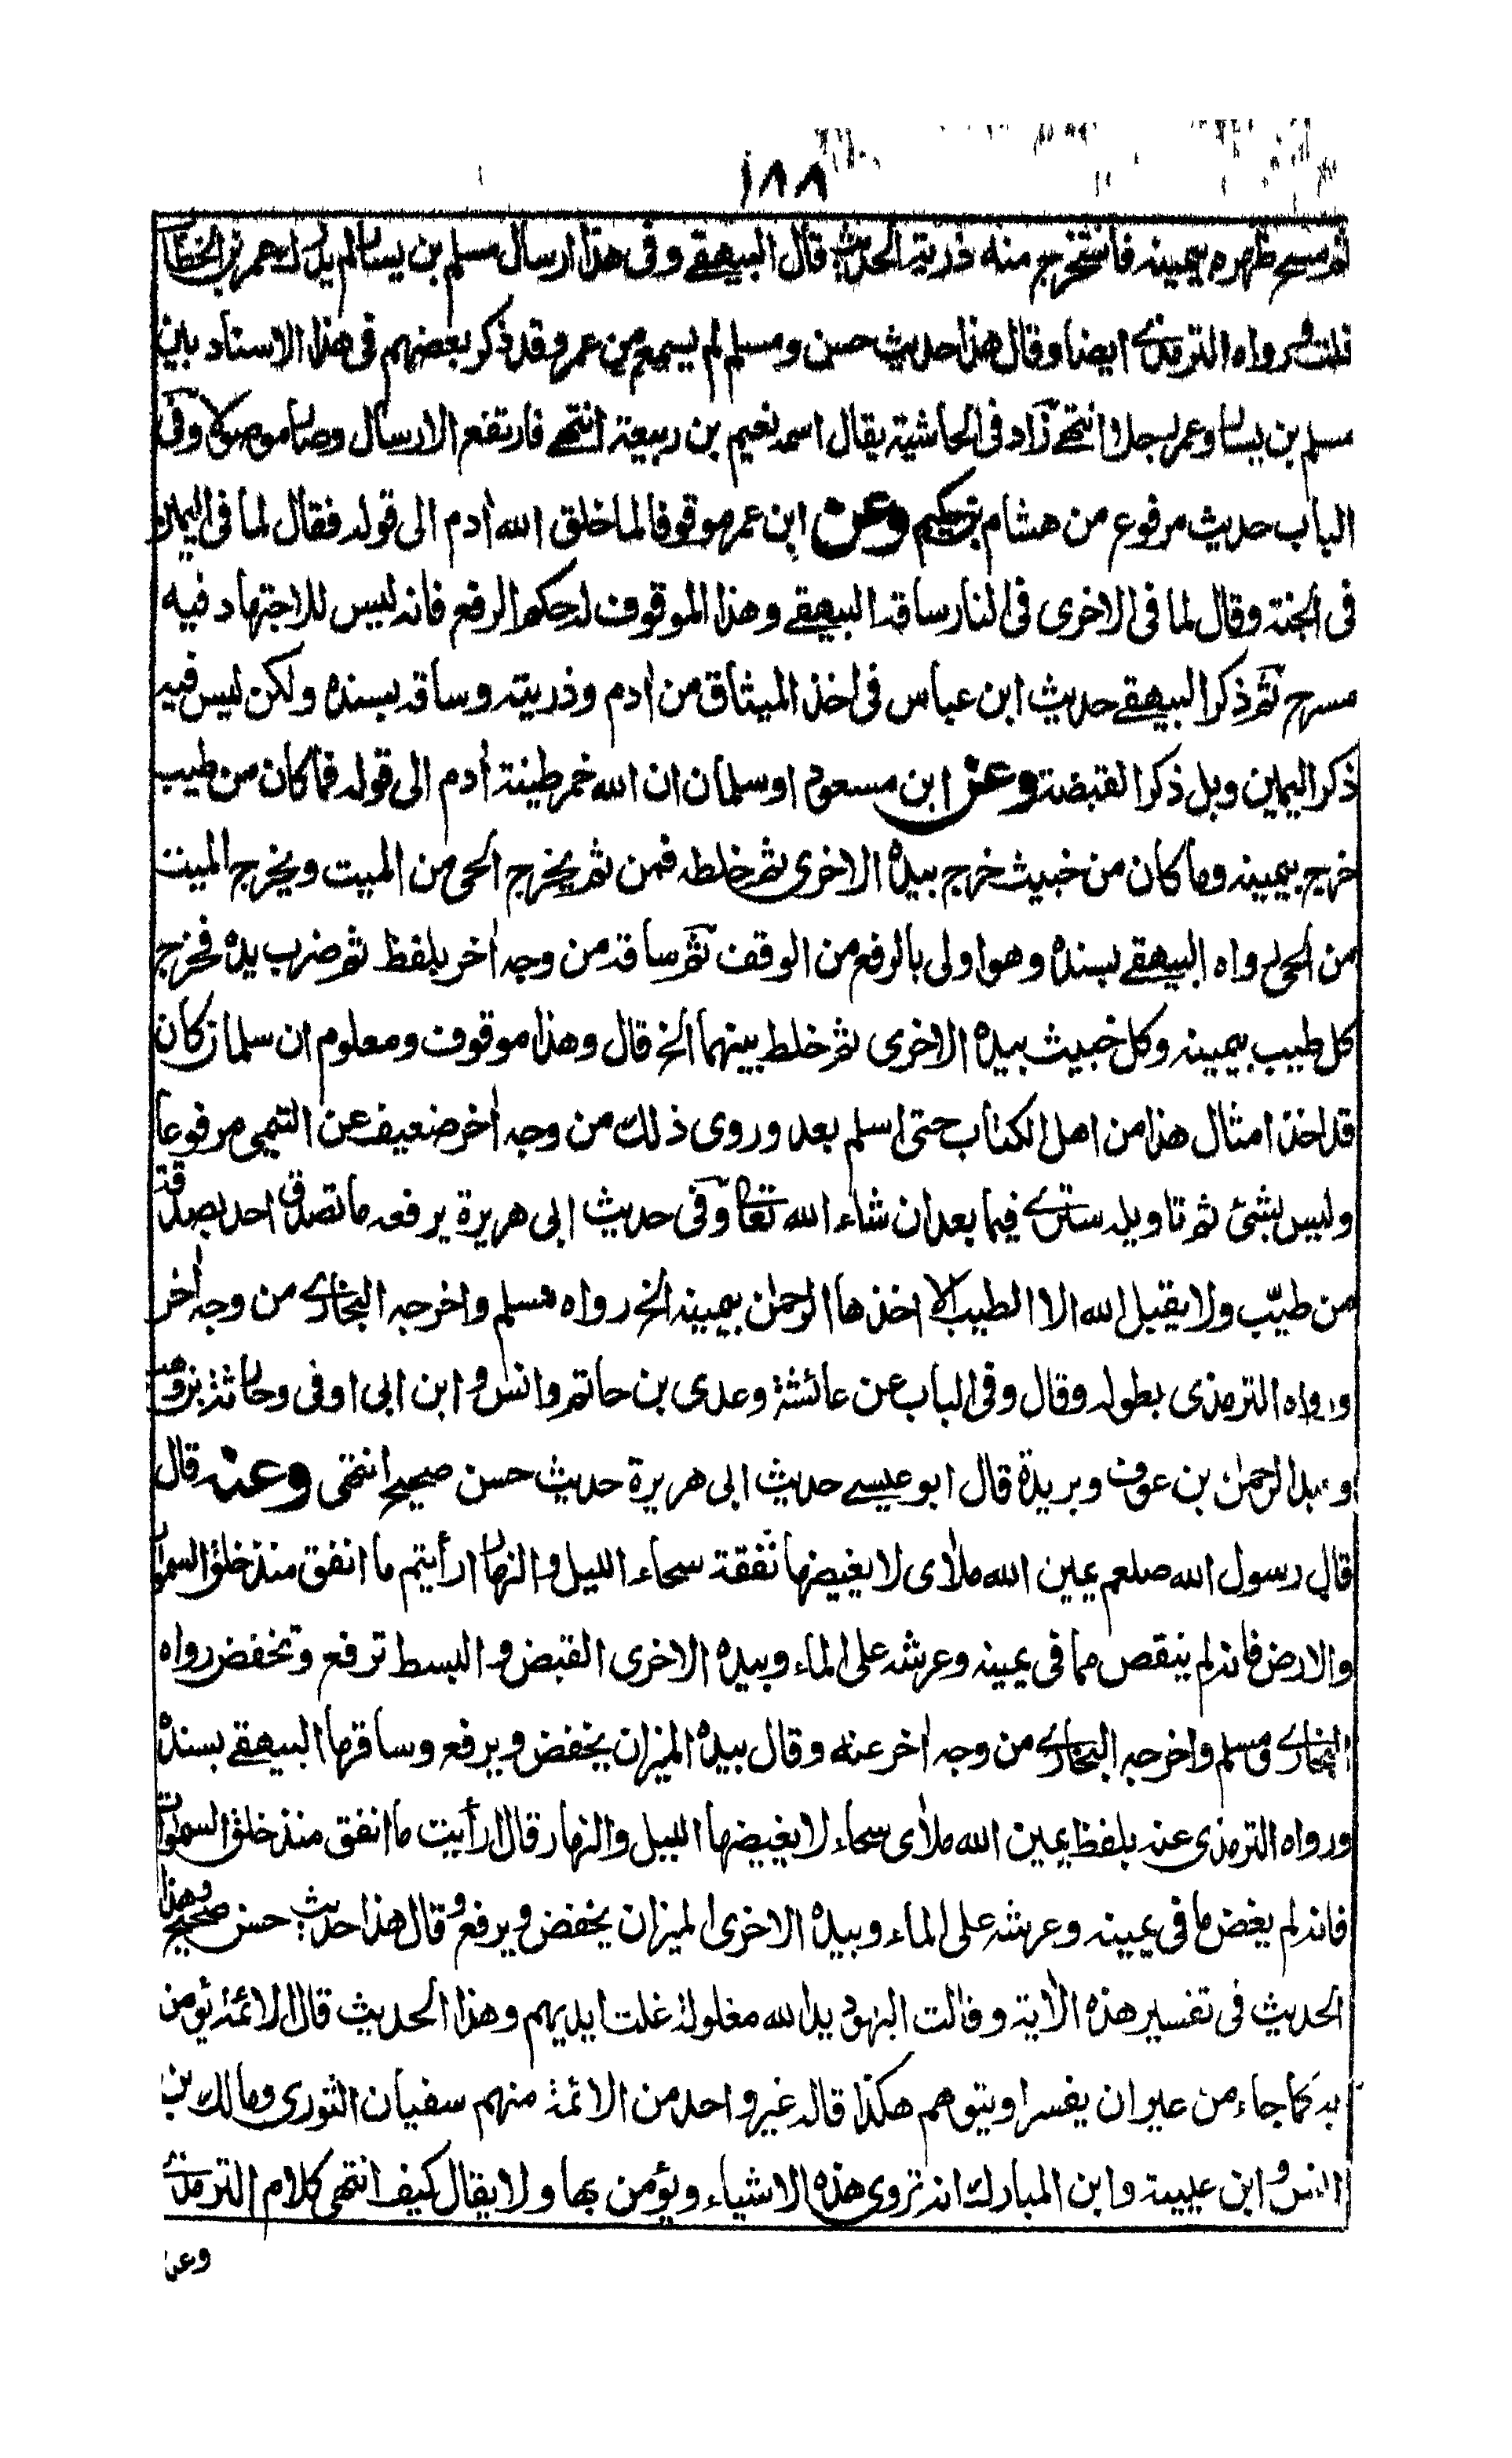 ١٨٨
ثم مسح ظهره بيمينه فاستخرج منه ذرية الحديث قال البيهقي وفى هذا ارسال مسلم بن يسار لم يدرك عمر بن الخطاب
قلت ورواه الترمذي ايضا وقال هذا حديث حسن ومسلم لم يسمع من عمر وقد ذكر بعضهم فى هذا الاسناد بين
مسلم بن يسار وعمر رجلا انتهى زاد فى الحاشية يقال اسمه نعيم بن ربيعة انتهى فارتفع الارسال وصار موصولا وفى
الباب حديث مرفوع من هشام بن حكيم وعن ابن عمر موقوفا لما خلق الله آدم الى قوله فقال لما فى اليمين
فى الجنة وقال لما فى الاخرى فى النار ساقه البيهقي وهذا الموقوف له حكم الرفع فانه ليس للاجتهاد فيه
مسرح ثم ذكر البيهقي حديث ابن عباس فى اخذ الميثاق من آدم وذريته وساقه بسنده ولكن ليس فيه
ذكر اليمين وبل ذكر القبضة وعن ابن مسعود او سلمان ان الله خمر طينة آدم الى قوله فما كان من طيب
خرج بيمينه وما كان من خبيث خرج بيده الاخرى ثم خلطه فمن ثم يخرج الحى من الميت ويخرج الميت
من الحى رواه البيهقي بسنده وهو اولى بالرفع من الوقف ثم ساقه من وجه آخر بلفظ ثم ضرب يده فخرج
كل طيب بيمينه وكل خبيث بيده الاخرى ثم خلط بينهما الخ قال وهذا موقوف ومعلوم ان سلمان كان
قد اخذ امثال هذا من اهل الكتاب حتى اسلم بعد وروى ذلك من وجه آخر ضعيف عن التيمى مرفوعا
وليس بشئ ثم تاويله سترى فيما بعد ان شاء الله تعالى وفى حديث ابى هريرة يرفعه ما تصدق احد بصدقة
من طيّب ولا يقبل الله الا الطيب الا اخذها الرحمٰن بيمينه الخ رواه مسلم واخرجه البخاري من وجه آخر
ورواه الترمذى بطوله وقال وفى الباب عن عائشة وعدى بن حاتم وانس و ابن ابى اوفى وحارثة بن وهب
وعبد الرحمٰن بن عوف وبريدة قال ابو عيسى حديث ابى هريرة حديث حسن صحيح انتهى وعنه قال
قال رسول الله صلعم يمين الله ملأى لا يغيضها نفقة سحاء الليل والنهار ارأيتم ما انفق منذ خلق السموات
والارض فانه لم ينقص مما فى يمينه وعرشه على الماء وبيده الاخرى القبض و البسط ترفع وتخفض رواه
البخاري ومسلم واخرجه البخاري من وجه آخر عنه وقال بيده الميزان يخفض ويرفع وساقها البيهقي بسنده
ورواه الترمذى عنه بلفظ يمين الله ملأى سحاء لا يغيضها الليل والنهار قال ارأيت ما انفق منذ خلق السموات
فانه لم يغض ما فى يمينه وعرشه على الماء وبيده الاخرى الميزان يخفض ويرفع وقال هذا حديث حسن صحيح وهذا
الحديث فى تفسير هذه الآية وقالت اليهود يد الله مغلولة غلت ايديهم وهذا الحديث قال الائمة نؤمن
به كما جاء من غير ان يفسر او يتوهم هكذا قاله غير واحد من الائمة منهم سفيان الثورى ومالك بن
انس و ابن عيينة وابن المبارك انه تروى هذه الاشياء ويؤمن بها ولا يقال كيف انتهى كلام الترمذي
وعن